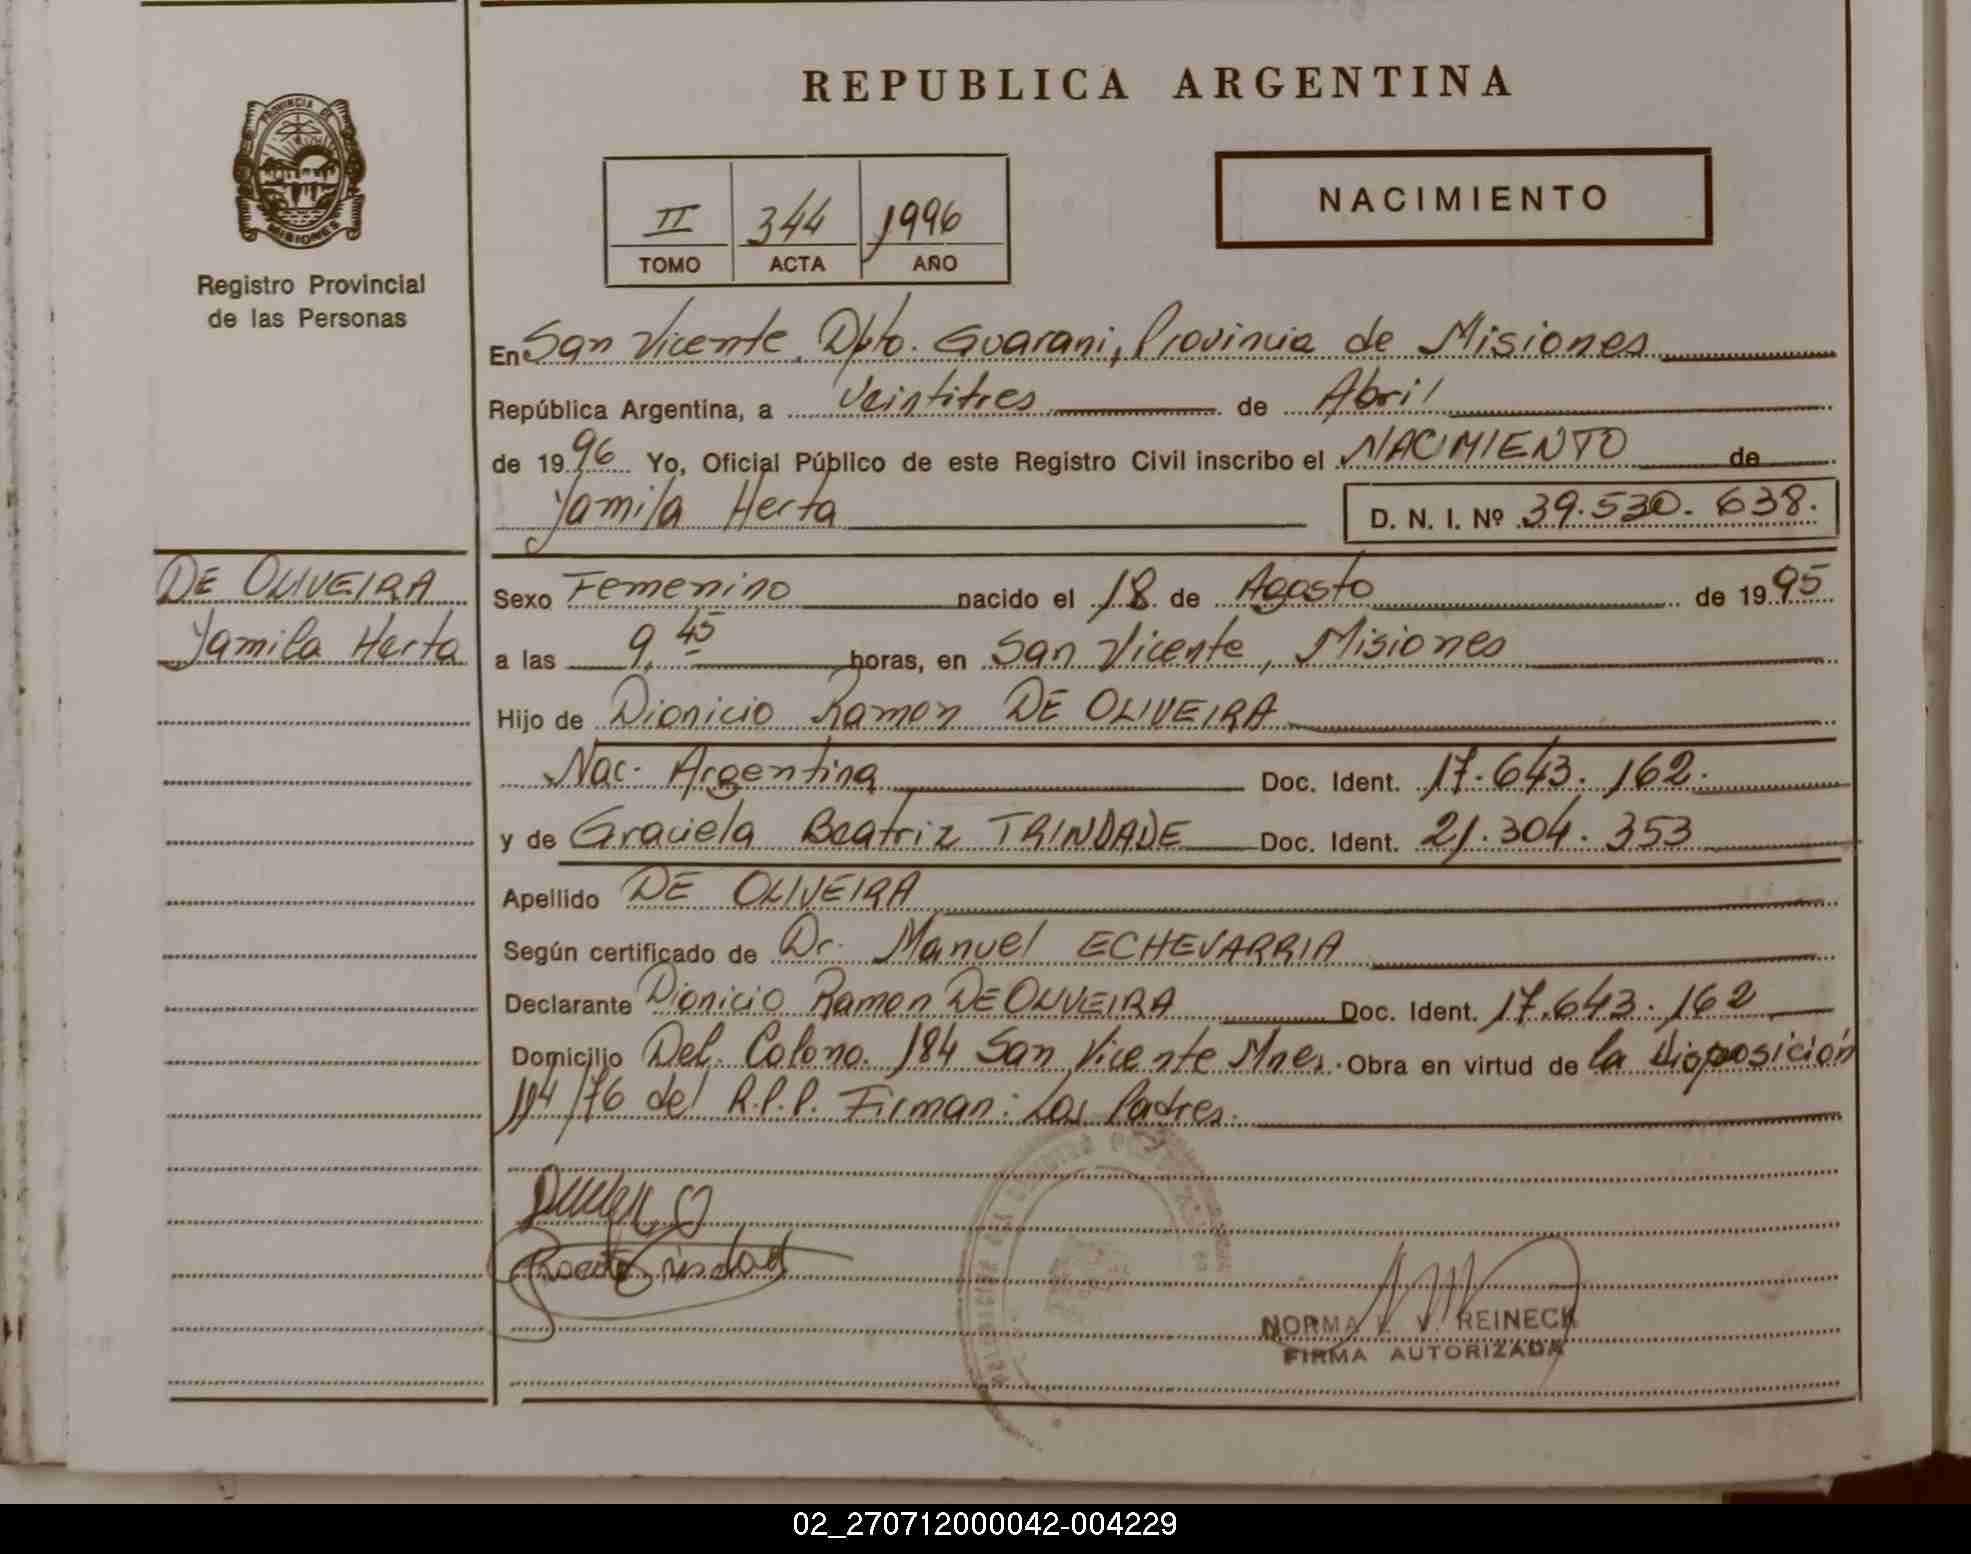 REPUBLICA ARGENTINA
PROVINCIA DE
MISIONES
Registro Provincial
de las Personas
II 344 1996
TOMO ACTA AÑO
NACIMIENTO
En San Vicente, Dpto. Guarani, Provincia de Misiones
República Argentina, a Veintitres de Abril
de 1996 Yo, Oficial Público de este Registro Civil inscribo el NACIMIENTO de
Yamila Herta D. N. I. Nº 39.530.638.
DE OLIVEIRA
Yamila Herta
Sexo Femenino nacido el 18 de Agosto de 1995
a las 9,45 horas, en San Vicente, Misiones
Hijo de Dionicio Ramon DE OLIVEIRA
Nac. Argentina Doc. Ident. 17.643.162.
y de Graciela Beatriz TRINDADE Doc. Ident. 21.304.353
Apellido DE OLIVEIRA
Según certificado de Dr. Manuel ECHEVARRIA
Declarante Dionicio Ramon DE OLIVEIRA Doc. Ident. 17.643.162
Domicilio Del Colono. 184 San Vicente Mnes. Obra en virtud de la disposición
104/76 del R.P.P. Firman: Los Padres.
NORMA V. REINECK
FIRMA AUTORIZADA
02_270712000042-004229